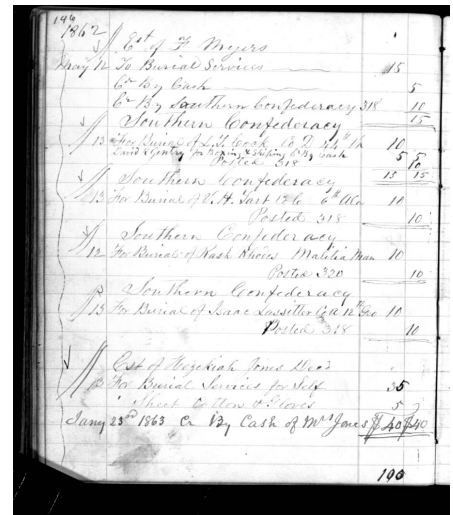 146
1862
Est of F Myers
May 12 To Burial Services 15
Cr By Cash 5
Cr By Southern Confederacy 318 10
15
Southern Confederacy
13 For Burial of L. T. Cook Co D 44th 10
David Gentry for Boxing & Cr By Cash 5 5
Posted 318 10
15 15
Southern Confederacy
13 For Burial of H. Tart Co 6th Ala 10
Posted 318 10
Southern Confederacy
13 For Burial of Kash Malitia Man 10
Posted 320 10
Southern Confederacy
13 For Burial of Isaac Lassitter Co A 12th Geo 10
Posted 318 10
Est of Hezekiah Jones Decd
13 For Burial Services for Self 35
Sheet Cotton & Gloves 5
Jany 23rd 1863 Cr By Cash of Mrs Jones $40 $40
190